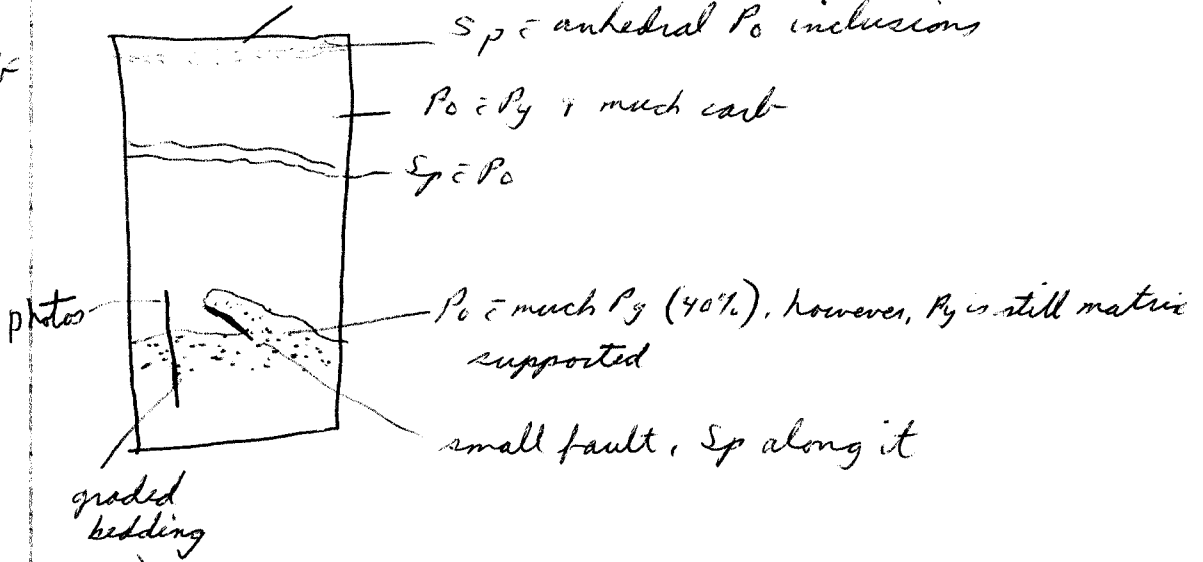 Sp c̄ anhedral Po inclusions
Po c̄ Py & much carb
Sp c̄ Po
photos
Po c̄ much Py (40%). however, Py is still matrix
supported
small fault, Sp along it
graded
bedding